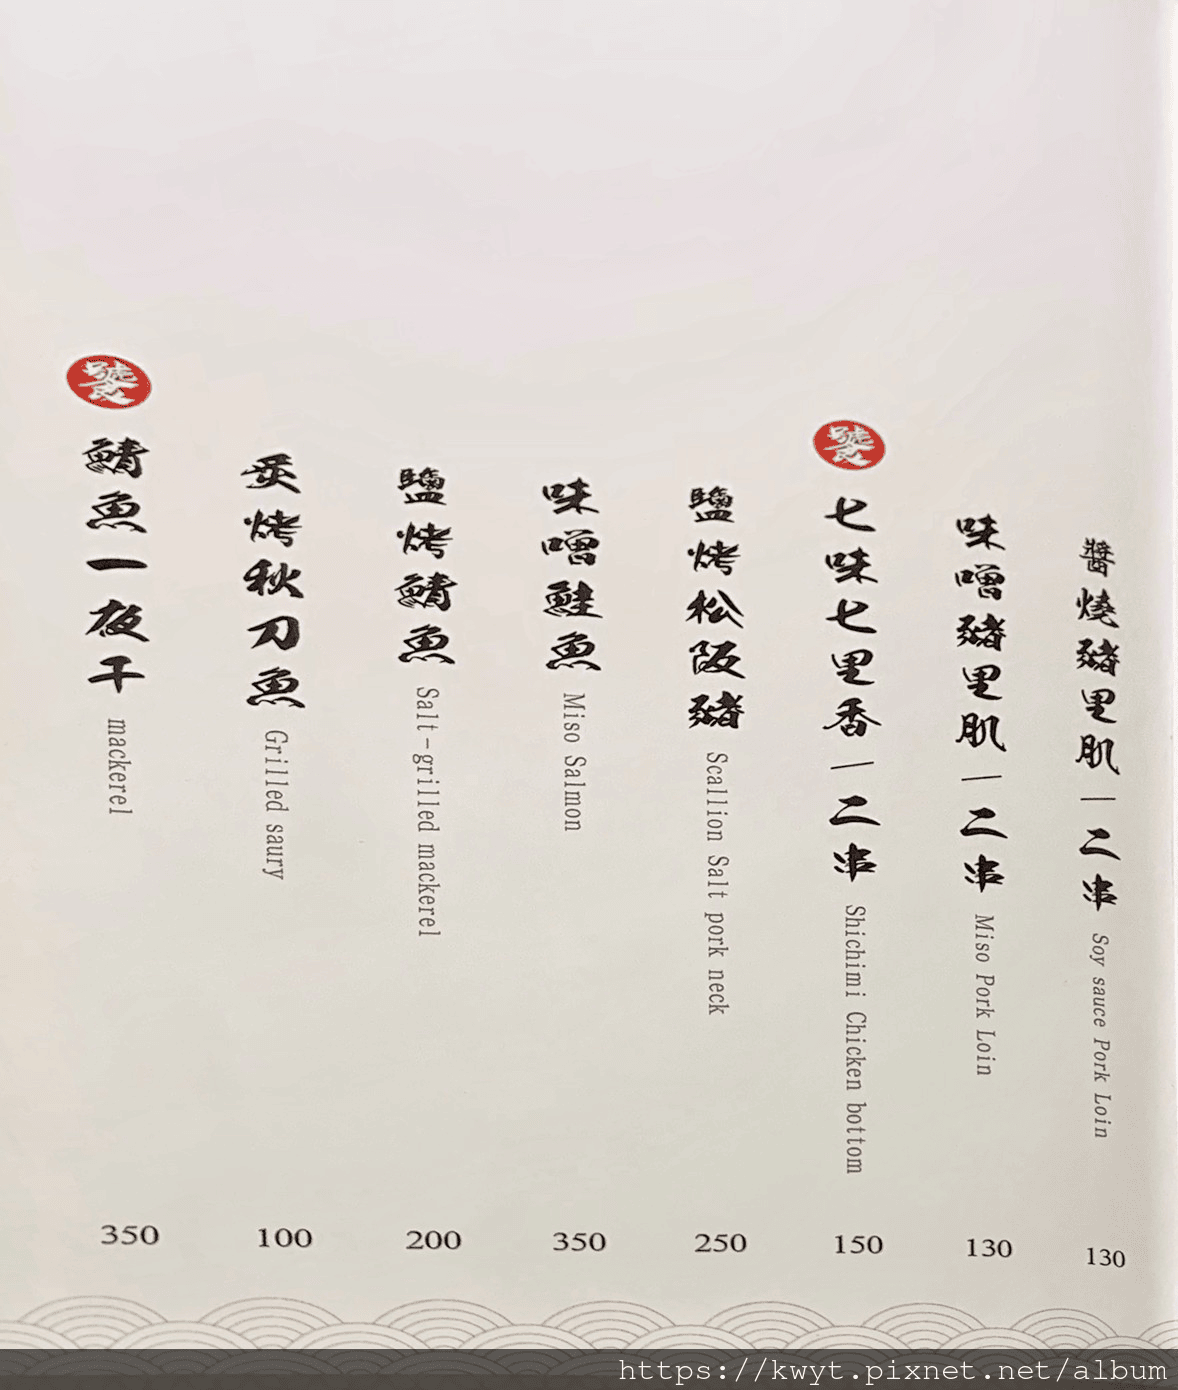 醬燒豬里肌|二串 Soy sauce Pork Loin 130
味噌豬里肌|二串 Miso Pork Loin 130
饕 七味七里香|二串 Shichimi Chicken bottom 150
鹽烤松阪豬 Scallion Salt pork neck 250
味噌鮭魚 Miso Salmon 350
鹽烤鯖魚 Salt-grilled mackerel 200
炙烤秋刀魚 Grilled saury 100
饕 鯖魚一夜干 mackerel 350
https://kwyt.pixnet.net/album